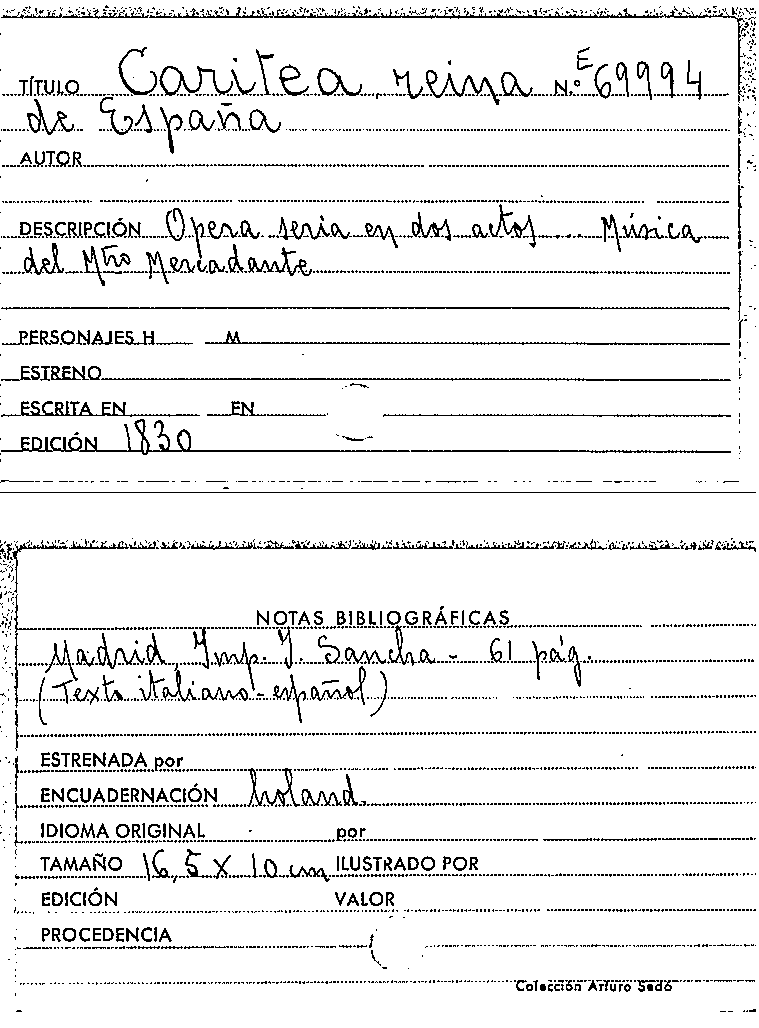 TÍTULO Caritea, reina N.º E 69994
de España
AUTOR
DESCRIPCIÓN Opera seria en dos actos... Música
del Mtro Mercadante
PERSONAJES H M
ESTRENO
ESCRITA EN EN
EDICIÓN 1830
NOTAS BIBLIOGRÁFICAS
Madrid, Imp. J. Sancha - 61 pág.
(Texto italiano-español)
ESTRENADA por
ENCUADERNACIÓN holand.
IDIOMA ORIGINAL por
TAMAÑO 16,5 X 10 cm ILUSTRADO POR
EDICIÓN VALOR
PROCEDENCIA
Colección Arturo Sedó